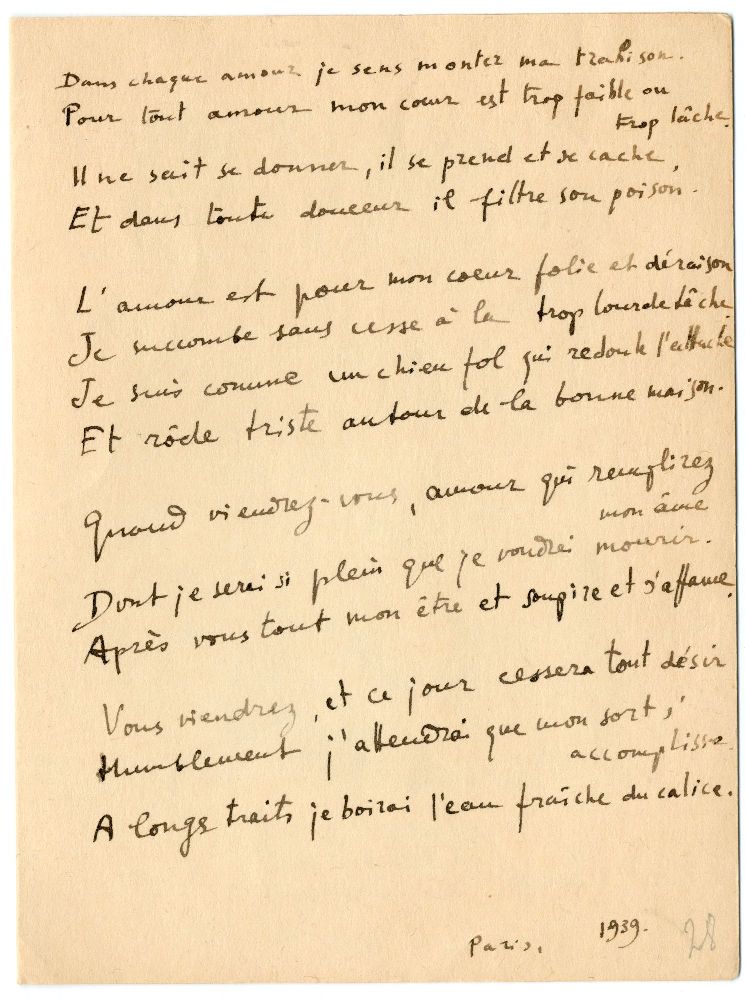 Dans chaque amour je sens monter ma trahison.
Pour tout amour mon cœur est trop faible ou
trop lâche.
Il ne sait se donner, il se prend et se cache,
Et dans toute douceur il filtre son poison.
L'amour est pour mon coeur folie et déraison
Je succombe sans cesse à la trop lourde tâche
Je suis comme un chien fol qui redoute l'attache
Et rôde triste autour de la bonne maison.
Quand viendrez-vous, amour qui remplirez
mon âme
Dont je serai si plein que je voudrai mourir.
Après vous tout mon être et soupire et s'affame.
Vous viendrez, et ce jour cessera tout désir
Humblement j'attendrai que mon sort s'
accomplisse.
A longs traits je boirai l'eau fraîche du calice.
Paris, 1939.
28